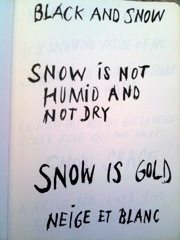 BLACK AND SNOW
SNOW IS NOT
HUMID AND
NOT DRY
SNOW IS GOLD
NEIGE ET BLANC